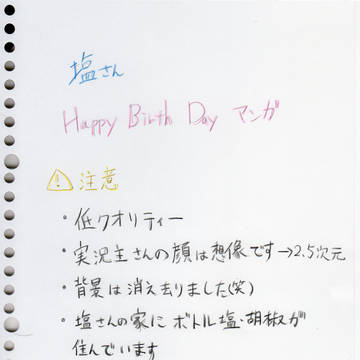 塩さん
Happy Birth Day マンガ
⚠注意
・低クオリティー
・実況主さんの顔は想像です→2.5次元
・背景は消え去りました(笑)
・塩さんの家にボトル塩・胡椒が
住んでいます